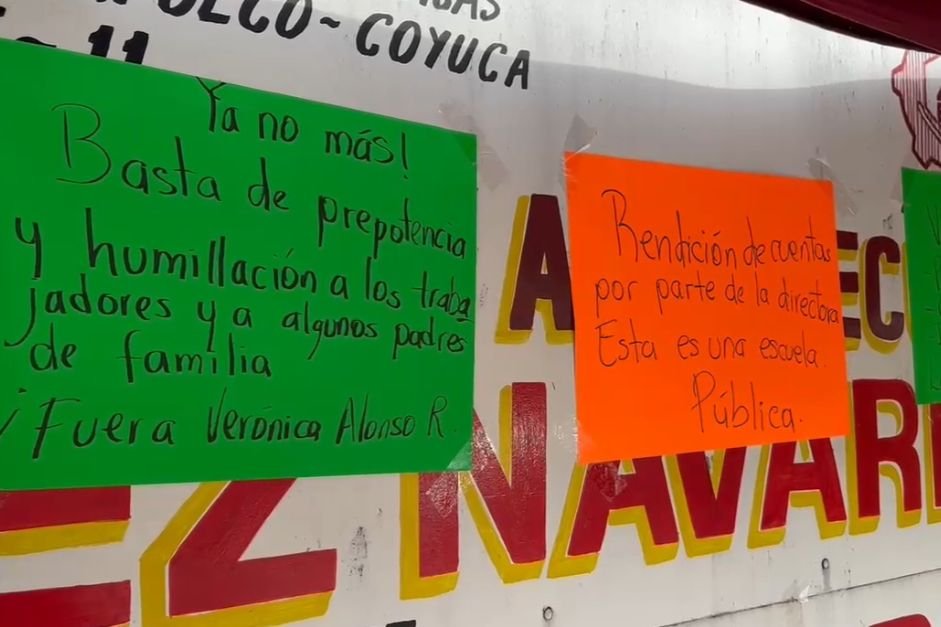 COYUCA
11
Ya no más!
Basta de prepotencia
y humillación a los traba
jadores y a algunos padres
de familia
¡Fuera Verónica Alonso R.
Rendición de cuentas
por parte de la directora
Esta es una escuela
Pública.
EZ NAVAR